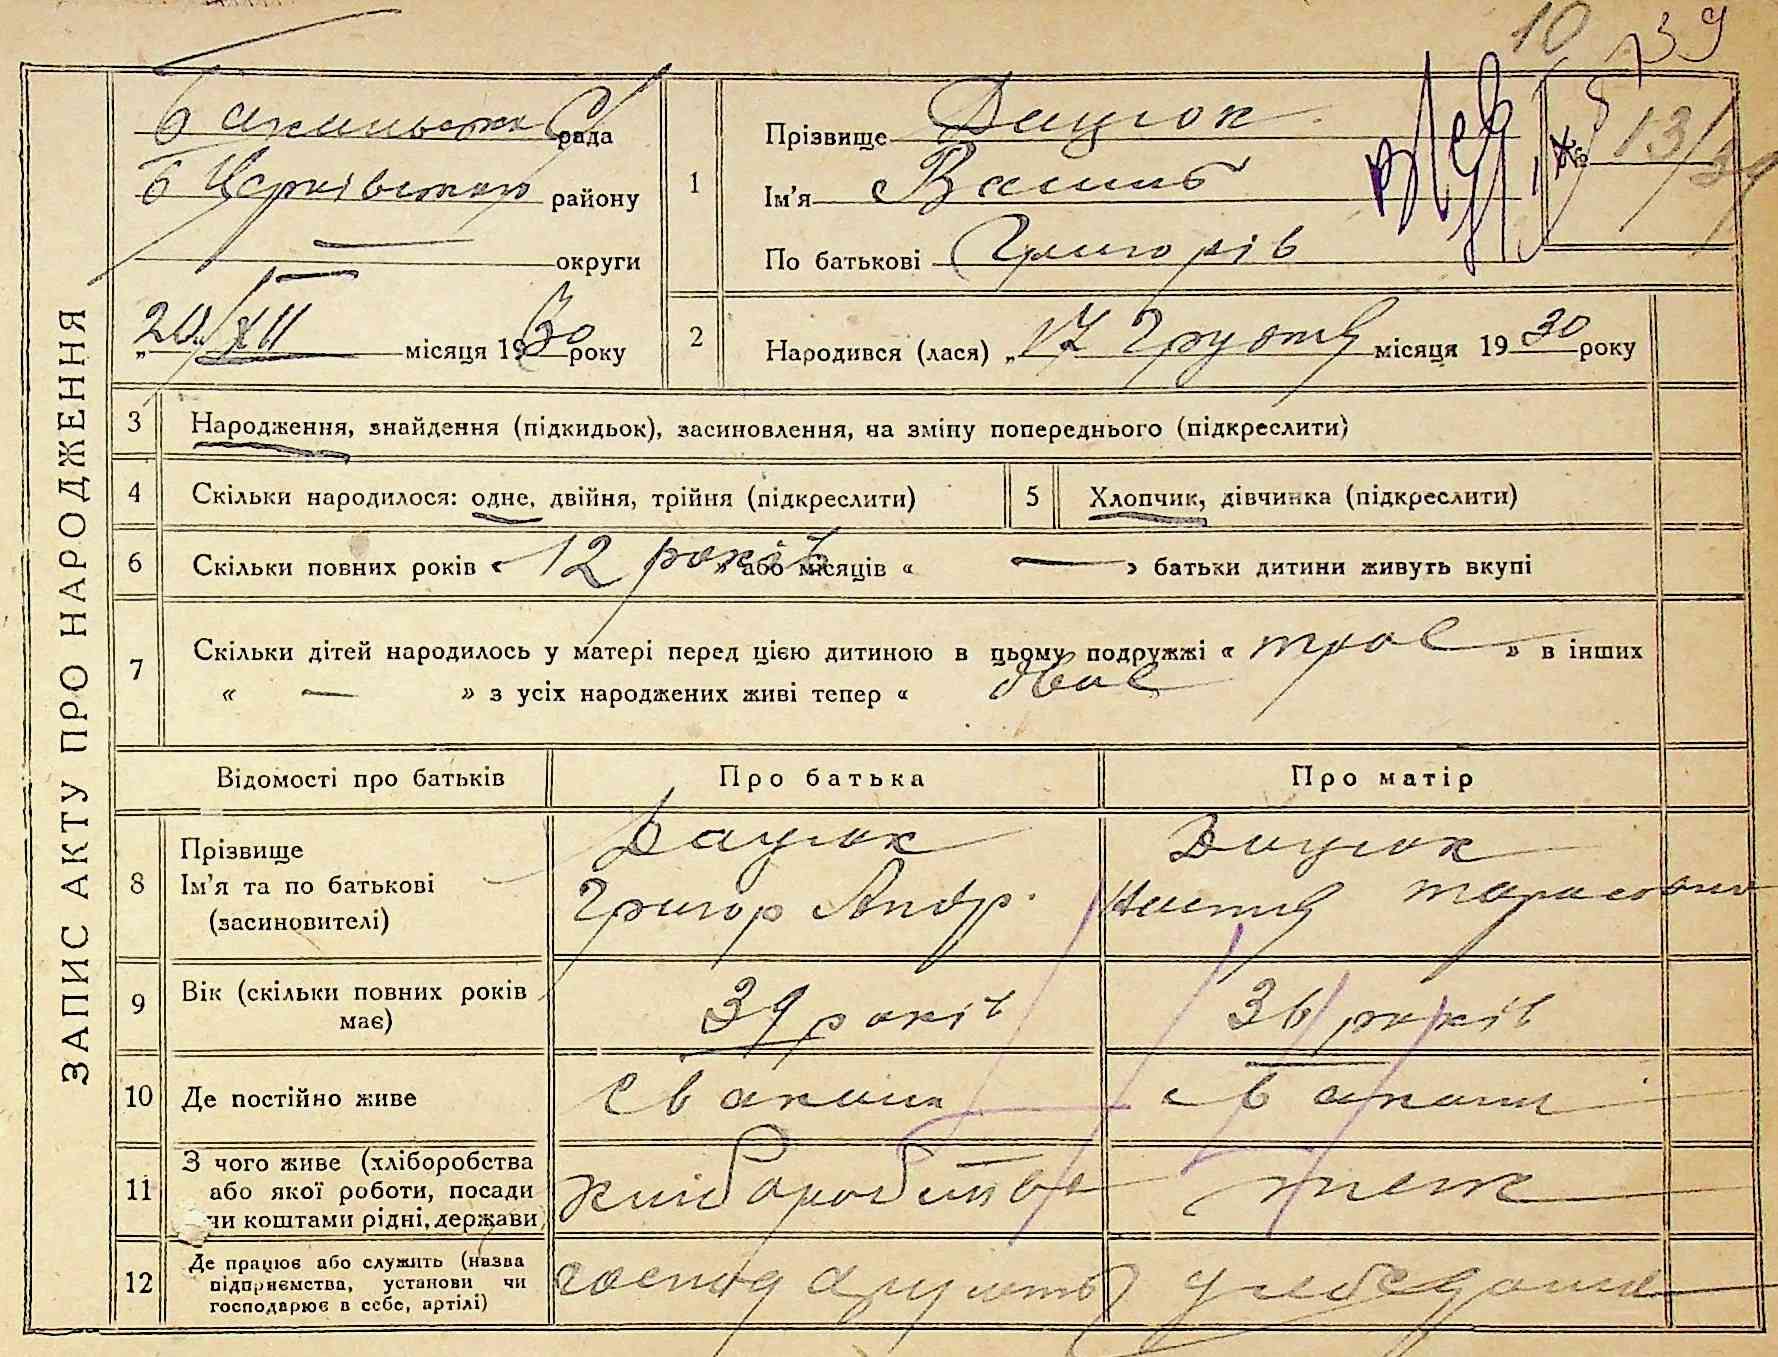 10 139
ЗАПИС АКТУ ПРО НАРОДЖЕННЯ
рада
Б Церківського району
— округи
„20“ XII місяця 1930 року
1
Прізвище Дацюк
Ім'я Василь
По батькові Григорів
№ 13/
2
Народився (лася) „17 Грудня місяця 1930 року
3 Народження, знайдення (підкидьок), засиновлення, на зміну попереднього (підкреслити)
4 Скільки народилося: одне, двійня, трійня (підкреслити) 5 Хлопчик, дівчинка (підкреслити)
6 Скільки повних років « 12 років » або місяців « — » батьки дитини живуть вкупі
7 Скільки дітей народилось у матері перед цією дитиною в цьому подружжі « троє » в інших
« — » з усіх народжених живі тепер « двоє
Відомості про батьків Про батька Про матір
8 Прізвище Дацюк Дацюк
Ім'я та по батькові Григор Андр. Настя Тарасовна
(засиновителі)
9 Вік (скільки повних років має) 39 років 36 років
10 Де постійно живе
11 З чого живе (хліборобства або якої роботи, посади чи коштами рідні, держави) хліборобства теж
12 Де працює або служить (назва підприємства, установи чи господарює в себе, артілі) господарують у себе дома